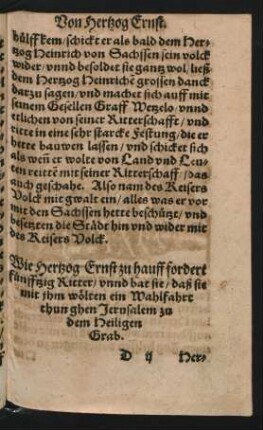 Von Hertzog Ernst.
hülff kem / schickt er als bald dem Her-
tzog Heinrich von Sachssen sein volck
wider / vnnd besoldet sie gantz wol, ließ
dem Hertzog Heinrichē grossen danck
darzu sagen / vnd machet sich auff mit
seinem Gesellen Graff Wetzelo / vnnd
etlichen von seiner Ritterschafft / vnd
ritte in eine sehr starcke Festung / die er
hette bauwen lassen / vnd schicket sich
als weñ er wolte von Land vnd Leu-
ten reittē mit seiner Ritterschaff / das
auch geschahe. Also nam des Keisers
Volck mit gwalt ein / alles was er vor
mit den Sachssen hette beschützt / vnd
besetzten die Städt hin vnd wider mit
des Keisers Volck.
Wie Hertzog Ernst zu hauff fordert
fünfftzig Ritter / vnnd bat sie / daß sie
mit jhm wölten ein Wahlfahrt
thun ghen Jerusalem zu
dem Heiligen
Grab.
D ij Her-